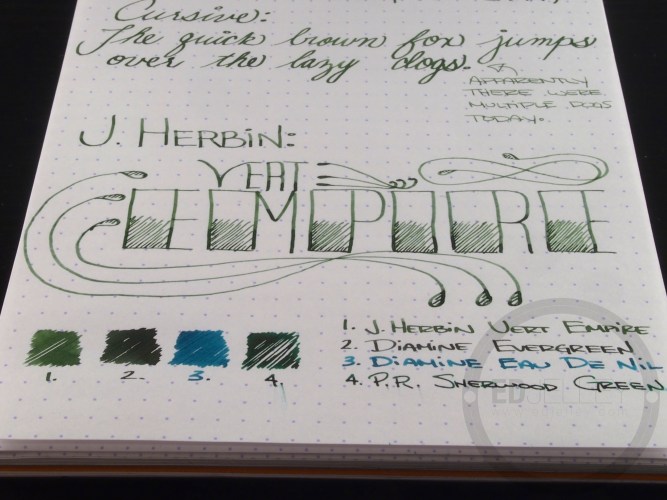 Cursive:
The quick brown fox jumps
over the lazy dogs.
APPARENTLY
THERE WERE
MULTIPLE DOGS
TODAY.
J. HERBIN:
VERT
EMPIRE
1. J. HERBIN VERT EMPIRE
2. DIAMINE EVERGREEN
3. DIAMINE EAU DE NIL
4. P.R. SHERWOOD GREEN
1.
2.
3.
4.